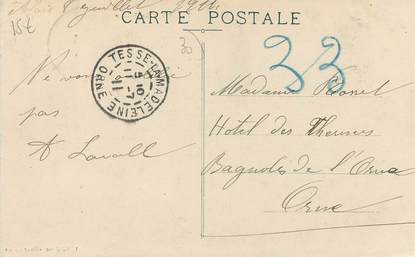 juillet 1911
CARTE POSTALE
15€
30
TESSE-LA-MADELEINE
ORNE
5 10
11 -7
11
33
Ne
pas
A Lavall
Madame
Hotel des Thermes
Bagnoles de l'Orne
Orne